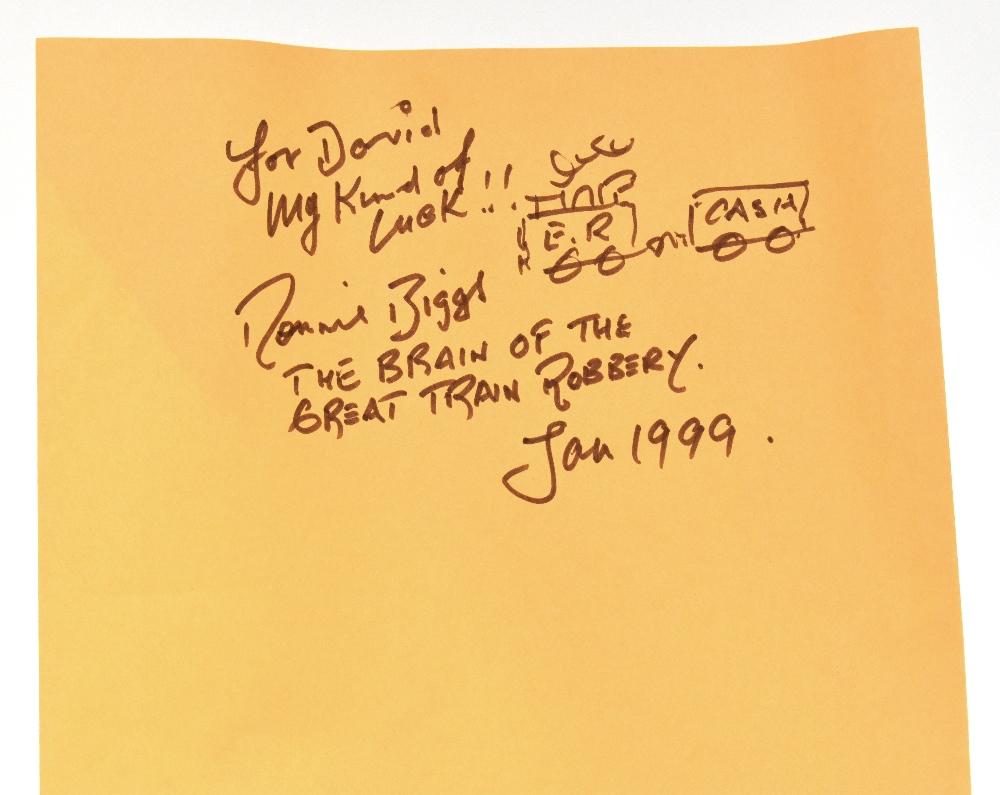 For David
My Kind of
Luck!!
E.R
CASH
Ronnie Biggs
THE BRAIN OF THE
GREAT TRAIN ROBBERY.
Jan 1999.